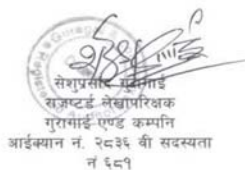 सेशुप्रसाद गुरागाई
राजष्टर्ड लेखापरिक्षक
गुरागाई एण्ड कम्पनि
आईक्यान नं. २८३६ बी सदस्यता
नं ६८९